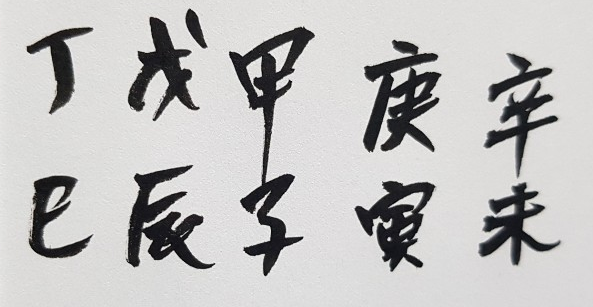 辛未
庚寅
甲子
戊辰
丁巳